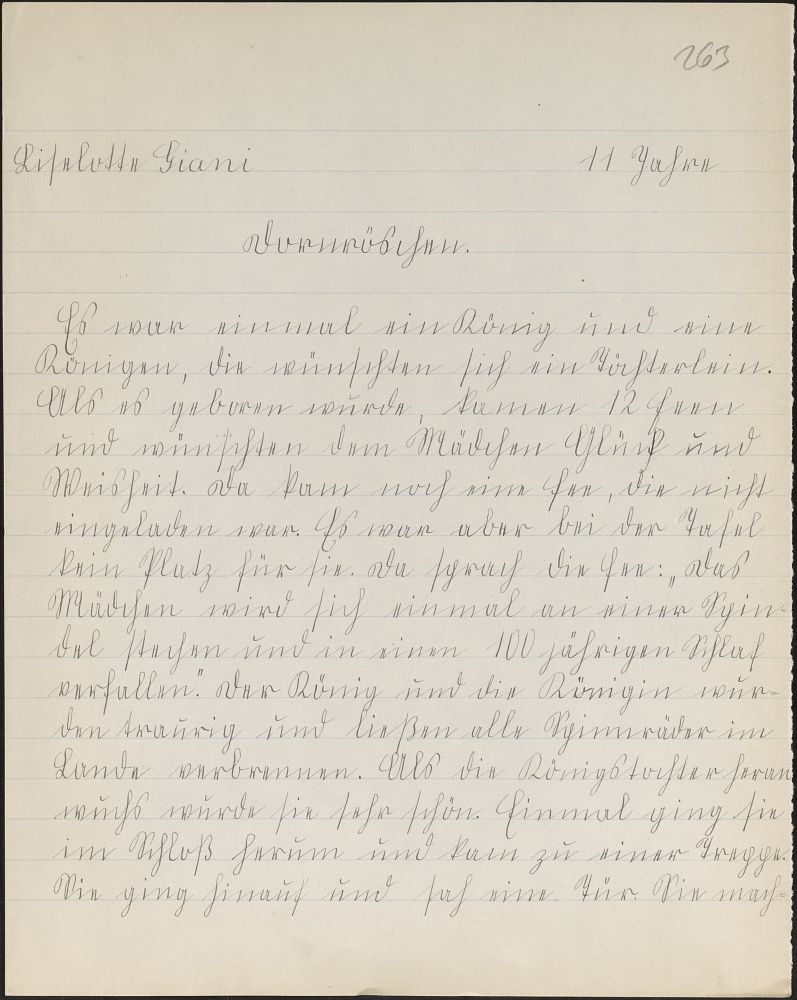 263
Liselotte Giani 11 Jahre
Dornröschen.
Es war einmal ein König und eine
Königen, die wünschten sich ein Töchterlein.
Als es geboren wurde, kamen 12 Feen
und wünschten dem Mädchen Glück und
Weisheit. Da kam noch eine Fee, die nicht
eingeladen war. Es war aber bei der Tafel
kein Platz für sie. Da sprach die Fee: „Das
Mädchen wird sich einmal an einer Spin-
del stechen und in einen 100 jährigen Schlaf
verfallen." Der König und die Königin wur-
den traurig und ließen alle Spinnräder im
Lande verbrennen. Als die Königstochter heran
wuchs wurde sie sehr schön. Einmal ging sie
im Schloß herum und kam zu einer Treppe.
Sie ging hinauf und sah eine Tür. Sie mach-